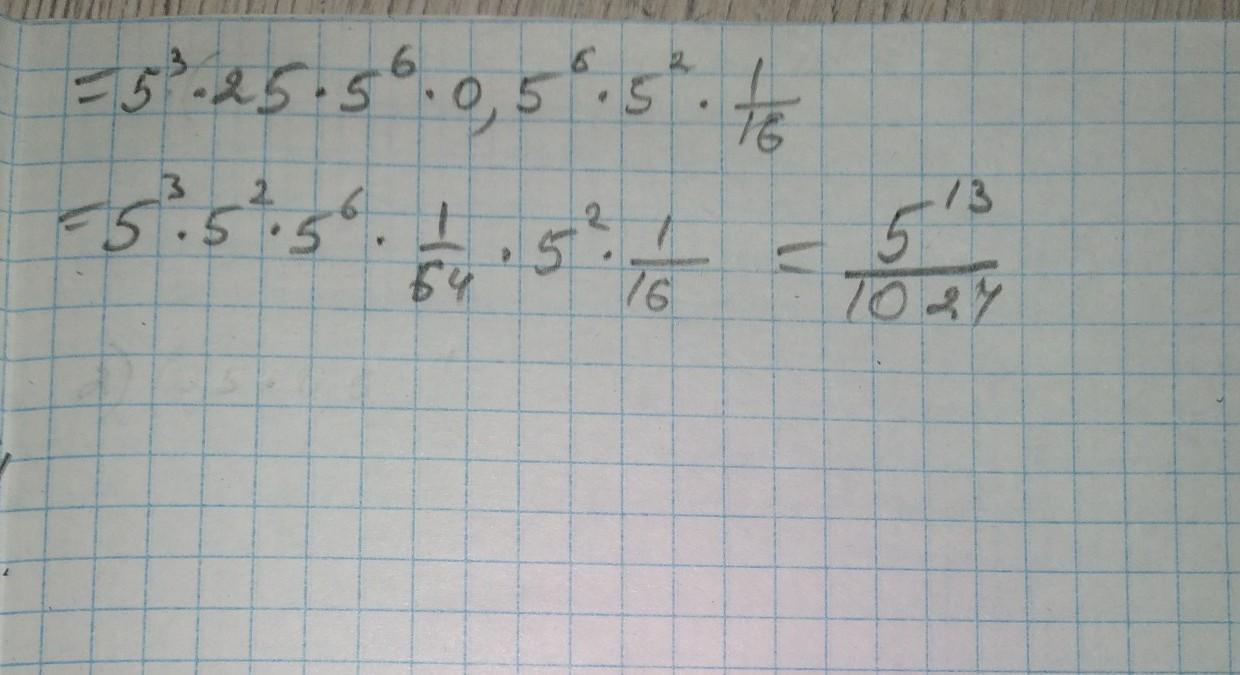 = 5³ · 25 · 5⁶ · 0,5⁶ · 5² · 1/16
= 5³ · 5² · 5⁶ · 1/64 · 5² · 1/16 = 5¹³/1024